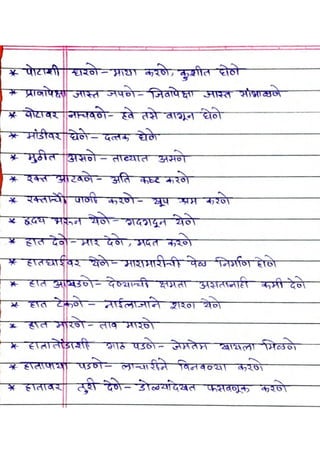 * पोटाशी धरणे - माया करणे, कुशीत घेणे
* प्राणापेक्षा जास्त जपणे - जिवापेक्षा जास्त सांभाळणे
* बोटावर नाचवणे - हवे तसे वागून घेणे
* मांडीवर घेणे - दत्तक घेणे
* मुठीत असणे - ताब्यात असणे
* रक्त आटवणे - अति कष्ट करणे
* रक्ताची पाणी करणे - खूप श्रम करणे
* हृदय भरून येणे - गदगदून येणे
* हात देणे - मार देणे, मदत करणे
* हातघाईवर येणे - मारामारीची वेळ निर्माण होणे
* हात आखडणे - देण्याची क्षमता असतानाही कमी देणे
* हात टेकणे - नाईलाजाने शरण येणे
* हात मारणे - ताव मारणे
* हातातोंडाशी गाठ पडणे - जेमतेम खायला मिळणे
* हातापाया पडणे - लाचारीने विनवण्या करणे
* हातावर तुरी देणे - डोळ्यांदेखत फसवणूक करणे